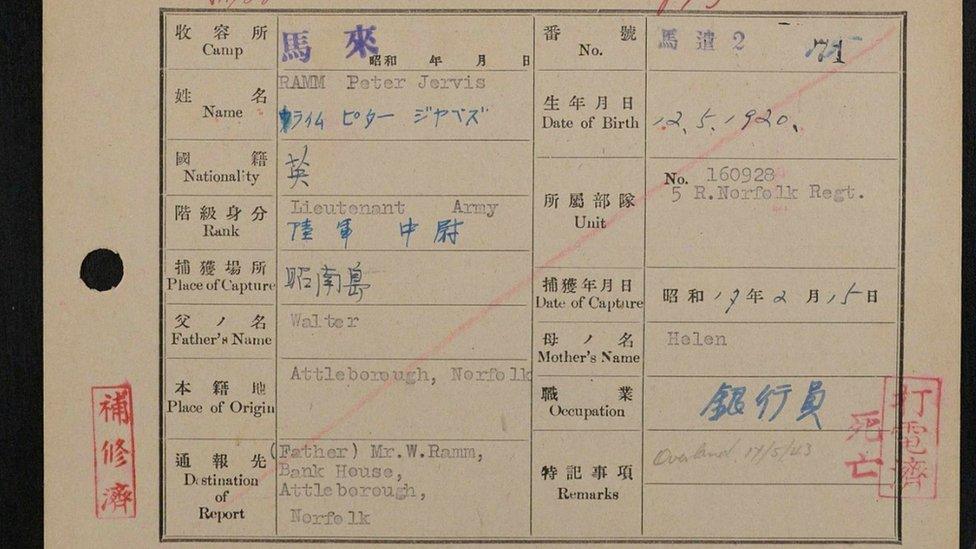 收容所
Camp
馬來
昭和 年 月 日
番號
No.
馬遣2
71
姓名
Name
RAMM Peter Jervis
ライム ピター ジヤベズ
生年月日
Date of Birth
12.5.1920.
國籍
Nationality
英
所屬部隊
Unit
No. 160928
5 R.Norfolk Regt.
階級身分
Rank
Lieutenant Army
陸軍 中尉
捕獲場所
Place of Capture
昭南島
捕獲年月日
Date of Capture
昭和17年2月15日
父ノ名
Father's Name
Walter
母ノ名
Mother's Name
Helen
本籍地
Place of Origin
Attleborough, Norfolk
職業
Occupation
銀行員
通報先
Destination
of
Report
(Father) Mr.W.Ramm,
Bank House,
Attleborough,
Norfolk
特記事項
Remarks
Overland 17/5/43
補修濟
死亡
打電濟